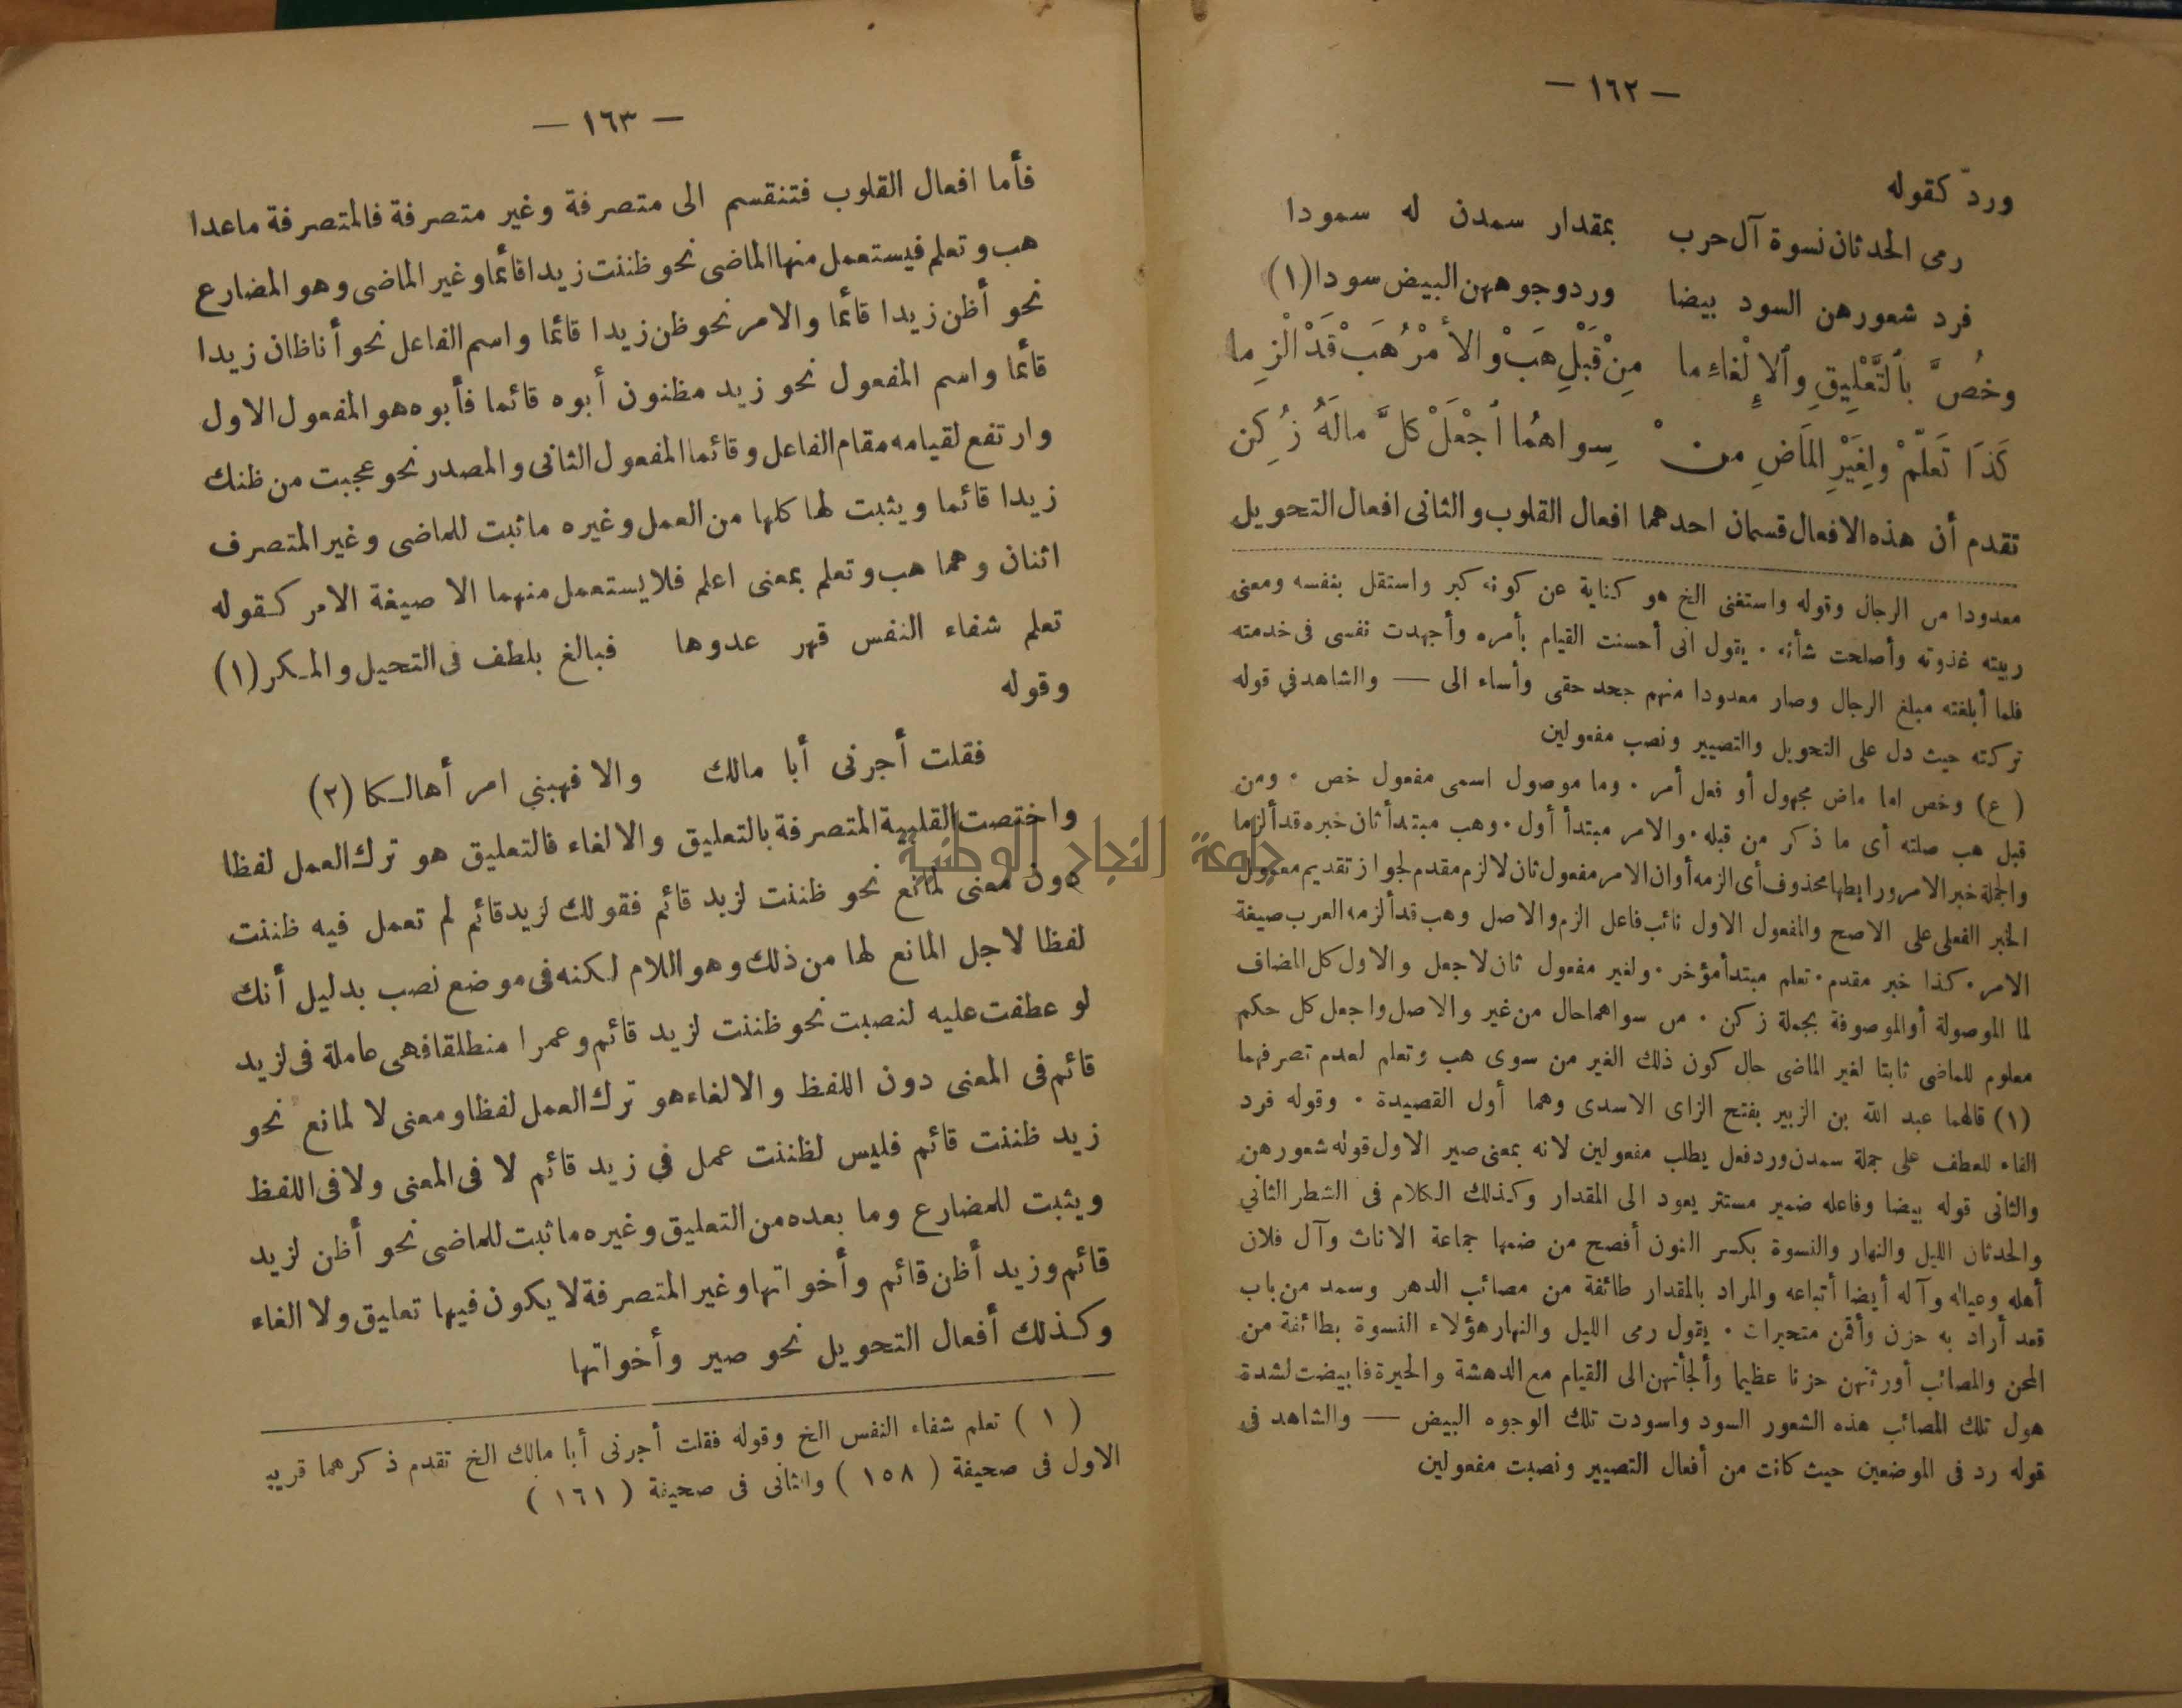 — ١٦٢ —
وردّ كقوله
رمى الحدثان نسوة آل حرب بمقدار سمدن له سمودا
فرد شعورهن السود بيضا وردوجوههن البيض سودا (١)
وخُصَّ بٱلتَّعْلِيقِ وٱلإِلْغاءِ ما مِنْ قَبْلِ هَبْ والأَمْرُ هَبْ قَدْ الْزِما
كَذَا تَعَلَّمْ ولِغَيْرِ المَاضِ منْ سِواهمُا ٱجْعَلْ كلَّ مالَهُ زُكِن
تقدم أن هذه الافعال قسمان احدهما افعال القلوب والثانى افعال التحويل
معدودا من الرجال وقوله واستغنى الخ هو كناية عن كونه كبر واستقل بنفسه ومعنى
ربيته غذوته وأصلحت شأنه . يقول انى أحسنت القيام بأمره وأجهدت نفسى فى خدمته
فلما أبلغته مبلغ الرجال وصار معدودا منهم جحد حقى وأساء الى — والشاهد في قوله
تركته حيث دل على التحويل والتصيير ونصب مفعولين
(ع) وخص اما ماض مجهول أو فعل أمر . وما موصول اسمى مفعول خص . ومن
قبل هب صلته أى ما ذكر من قبله . والامر مبتدأ أول . وهب مبتدأ ثان خبره قد ألزما
والجملة خبر الامر ورابطها محذوف أى الزمه أو ان الامر مفعول ثان لالزم مقدم لجواز تقديم معمول
الخبر الفعلى على الاصح والمفعول الاول نائب فاعل الزم والاصل وهب قد ألزمه العرب صيغة
الامر . كذا خبر مقدم . تعلم مبتدأ مؤخر . ولغير مفعول ثان لاجعل والاول كل المضاف
لما الموصولة أو الموصوفة بجملة زكن . من سواهما حال من غير والاصل واجعل كل حكم
معلوم للماضى ثابتا لغير الماضى حال كون ذلك الغير من سوى هب وتعلم لعدم تصرفهما
(١) قالهما عبد الله بن الزبير بفتح الزاى الاسدى وهما أول القصيدة . وقوله فرد
الفاء للعطف على جملة سمدن ورد فعل يطلب مفعولين لانه بمعنى صير الاول قوله شعورهن
والثانى قوله بيضا وفاعله ضمير مستتر يعود الى المقدار وكذلك الكلام فى الشطر الثاني
والحدثان الليل والنهار والنسوة بكسر النون أفصح من ضمها جماعة الاناث وآل فلان
أهله وعياله وآله أيضا أتباعه والمراد بالمقدار طائفة من مصائب الدهر وسمد من باب
قعد أراد به حزن وأقمن متحيرات . يقول رمى الليل والنهار هؤلاء النسوة بطائفة من
المحن والمصائب أورثتهن حزنا عظيما وألجأتهن الى القيام مع الدهشة والحيرة فابيضت لشدة
هول تلك المصائب هذه الشعور السود واسودت تلك الوجوه البيض — والشاهد فى
قوله رد فى الموضعين حيث كانت من أفعال التصيير ونصبت مفعولين
— ١٦٣ —
فأما افعال القلوب فتنقسم الى متصرفة وغير متصرفة فالمتصرفة ماعدا
هب وتعلم فيستعمل منها الماضى نحو ظننت زيدا قائما وغير الماضى وهو المضارع
نحو أظن زيدا قائما والامر نحو ظن زيدا قائما واسم الفاعل نحو أنا ظان زيدا
قائما واسم المفعول نحو زيد مظنون أبوه قائما فأبوه هو المفعول الاول
وارتفع لقيامه مقام الفاعل وقائما المفعول الثانى والمصدر نحو عجبت من ظنك
زيدا قائما ويثبت لها كلها من العمل وغيره ماثبت للماضى وغير المتصرف
اثنان وهما هب وتعلم بمعنى اعلم فلا يستعمل منهما الا صيغة الامر كقوله
تعلم شفاء النفس قهر عدوها فبالغ بلطف فى التحيل والمكر (١)
وقوله
فقلت أجرنى أبا مالك والا فهبني امرأ هالكا (٢)
واختصت القلبية المتصرفة بالتعليق والالغاء فالتعليق هو ترك العمل لفظا
دون معنى لمانع نحو ظننت لزيد قائم فقولك لزيد قائم لم تعمل فيه ظننت
لفظا لاجل المانع لها من ذلك وهو اللام لكنه فى موضع نصب بدليل أنك
لو عطفت عليه لنصبت نحو ظننت لزيد قائم وعمرا منطلقا فهى عاملة فى لزيد
قائم فى المعنى دون اللفظ والالغاء هو ترك العمل لفظا ومعنى لا لمانع نحو
زيد ظننت قائم فليس لظننت عمل في زيد قائم لا فى المعنى ولا فى اللفظ
ويثبت للمضارع وما بعده من التعليق وغيره ماثبت للماضى نحو أظن لزيد
قائم وزيد أظن قائم وأخواتها وغير المتصرفة لا يكون فيها تعليق ولا الغاء
وكذلك أفعال التحويل نحو صير وأخواتها
(١) تعلم شفاء النفس الخ وقوله فقلت أجرنى أبا مالك الخ تقدم ذكرهما قريبا
الاول فى صحيفة (١٥٨) والثانى فى صحيفة (١٦١)
جامعة النجاح الوطنية